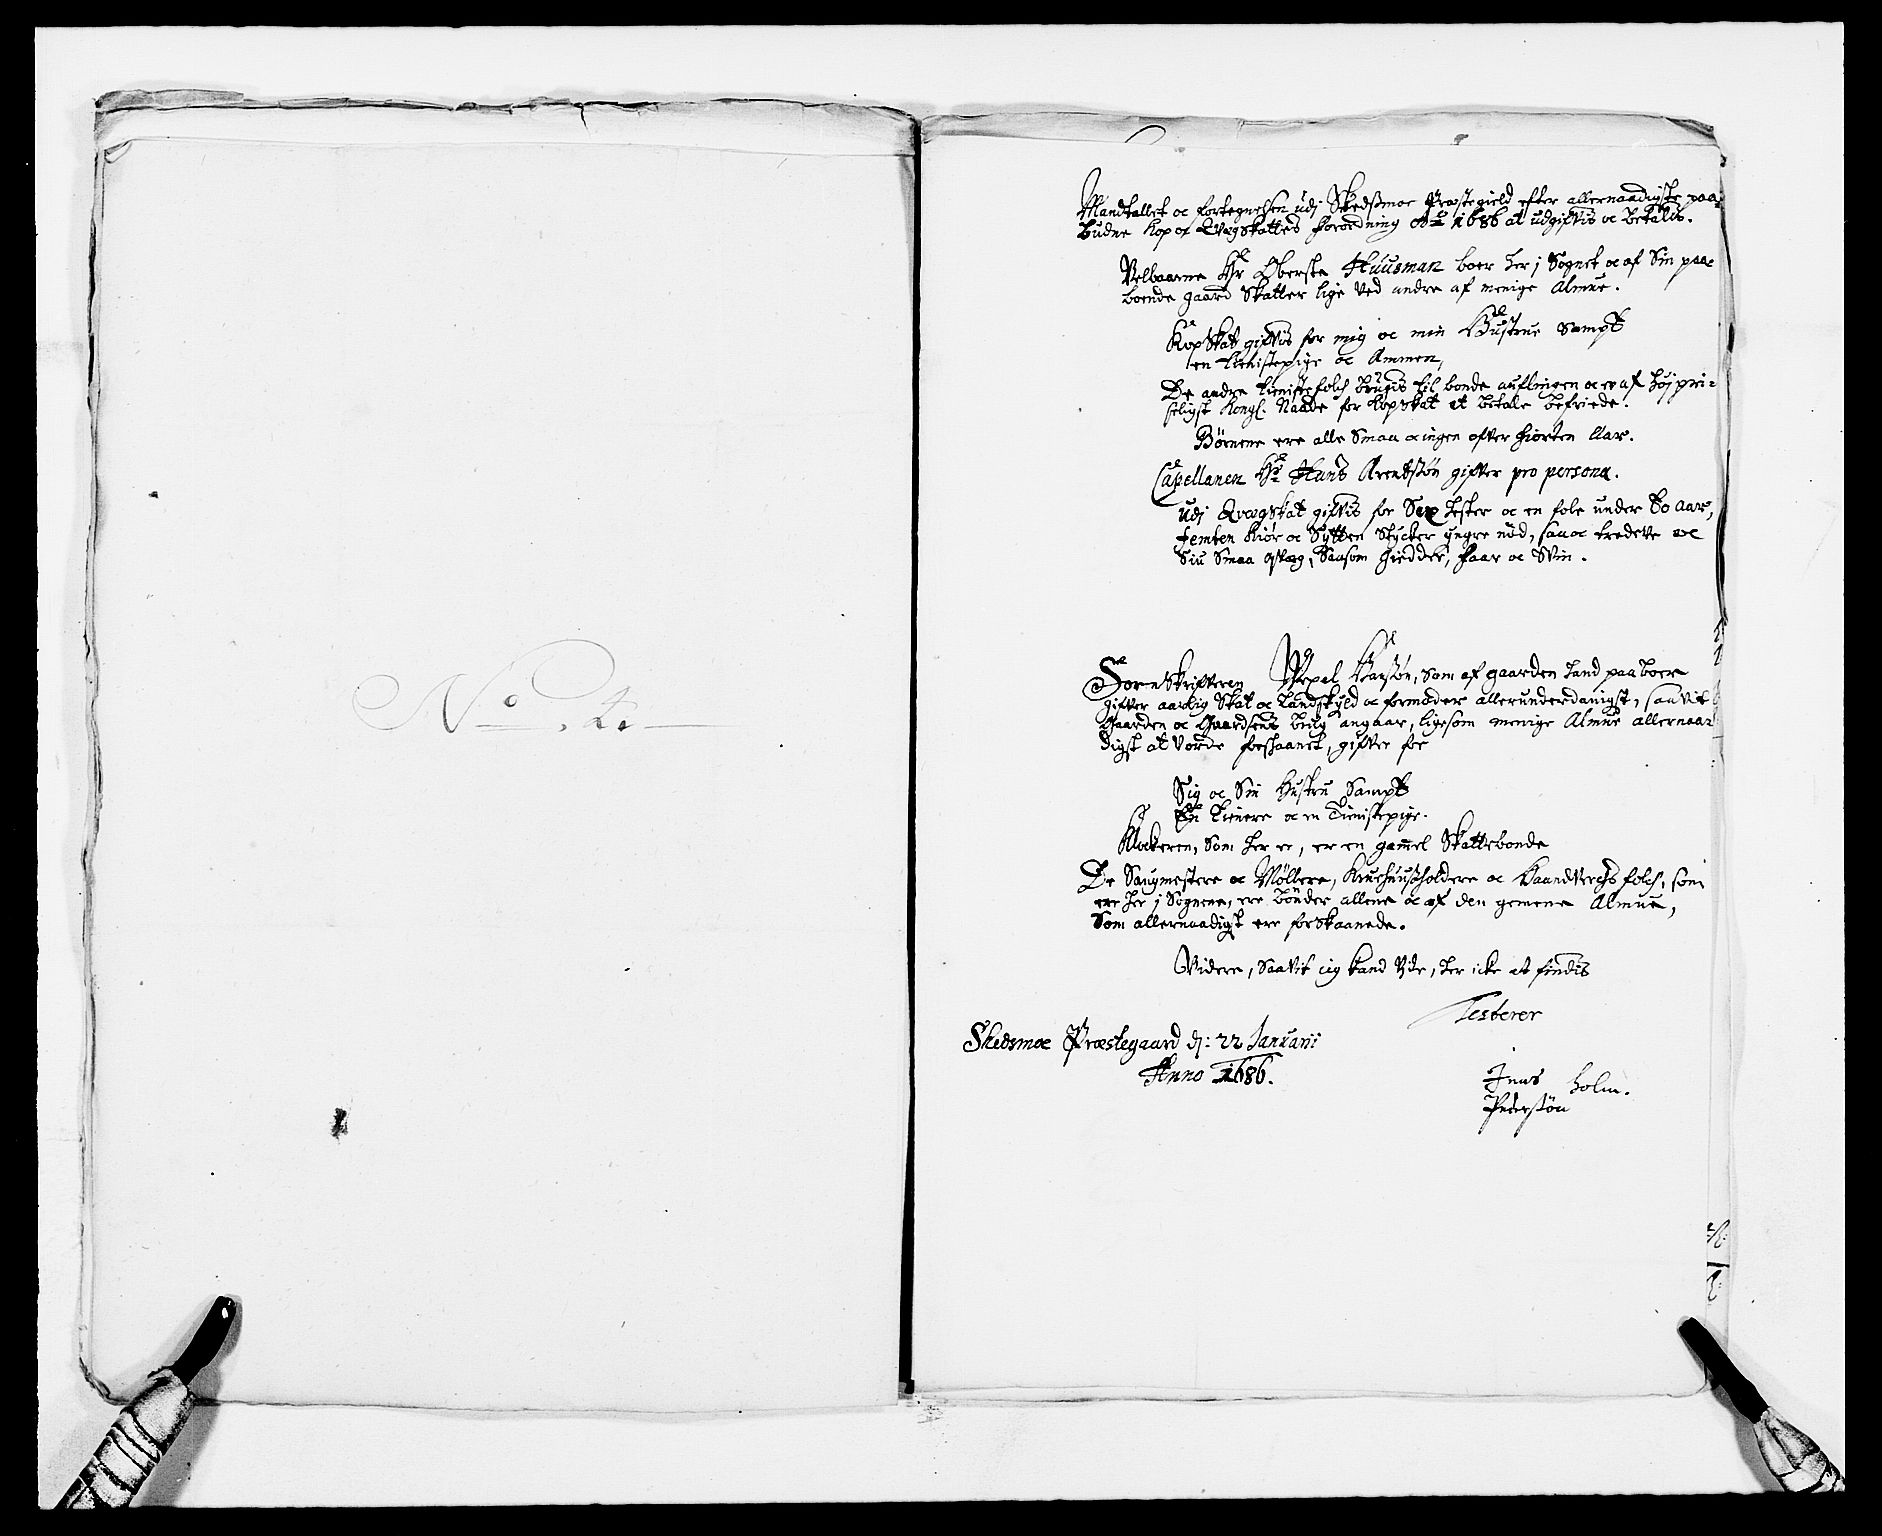 No. 4.
Mandtallet oc fortegnelsen udj Skedsmoe Præstegield efter allernaadigste paa-
budne kop oc Qvægskattes forordning Ao 1686 at udgifvis oc betalis.
Velbaarne Hr Oberste Huusman boer her j Sognet oc af Sin paa-
boende gaard Skatter lige ved andre af menige Almue.
KopSkat gifvis for mig oc min Hustrue Sampt
en tienistepige oc Ammen,
De andre tienistefolch brugis til bonde auflingen oc er af høj pri-
seligst Kongl. Naade for kopskat at betale befriede.
Børnene ere alle Smaa oc ingen ofver fiorten Aar.
Capellanen Hr Hans Arentsøn gifver pro persona.
Udj Qvægskat gifvis for Sex hester oc en fole under to aar,
femten Kiør oc Sytten Stycker yngre nød, saa oc tredeve oc
Siu Smaa qvæg, Saasom giedder, faar oc Svin.
Sorenskrifveren Hansøn, som af gaarden hand paaboer
gifver aarlig Skat oc Landskyld oc formoder allerunderdanigst, saavit
Gaarden oc Gaardsens brug angaar, ligesom menige Almue allernaa-
digst at vorde forskaanet, gifver for
Sig oc Sin Hustru Sampt
En tienere oc en Tienistepige.
Klockeren, Som her er, er en gammel Skattebonde
De Saugmestere oc Møllere, Kruehuusholdere oc Haandverchsfolch, som
ere her j Sognene, ere bønder allene oc af den gemene Almue,
Som allernaadigst ere forskaanede.
Videre, saavit jeg kand vide, her icke at findis
Testerer
Skedsmoe Præstegaard dj: 22 Januarii
Anno 1686.
Jens Holm.
Pedersøn